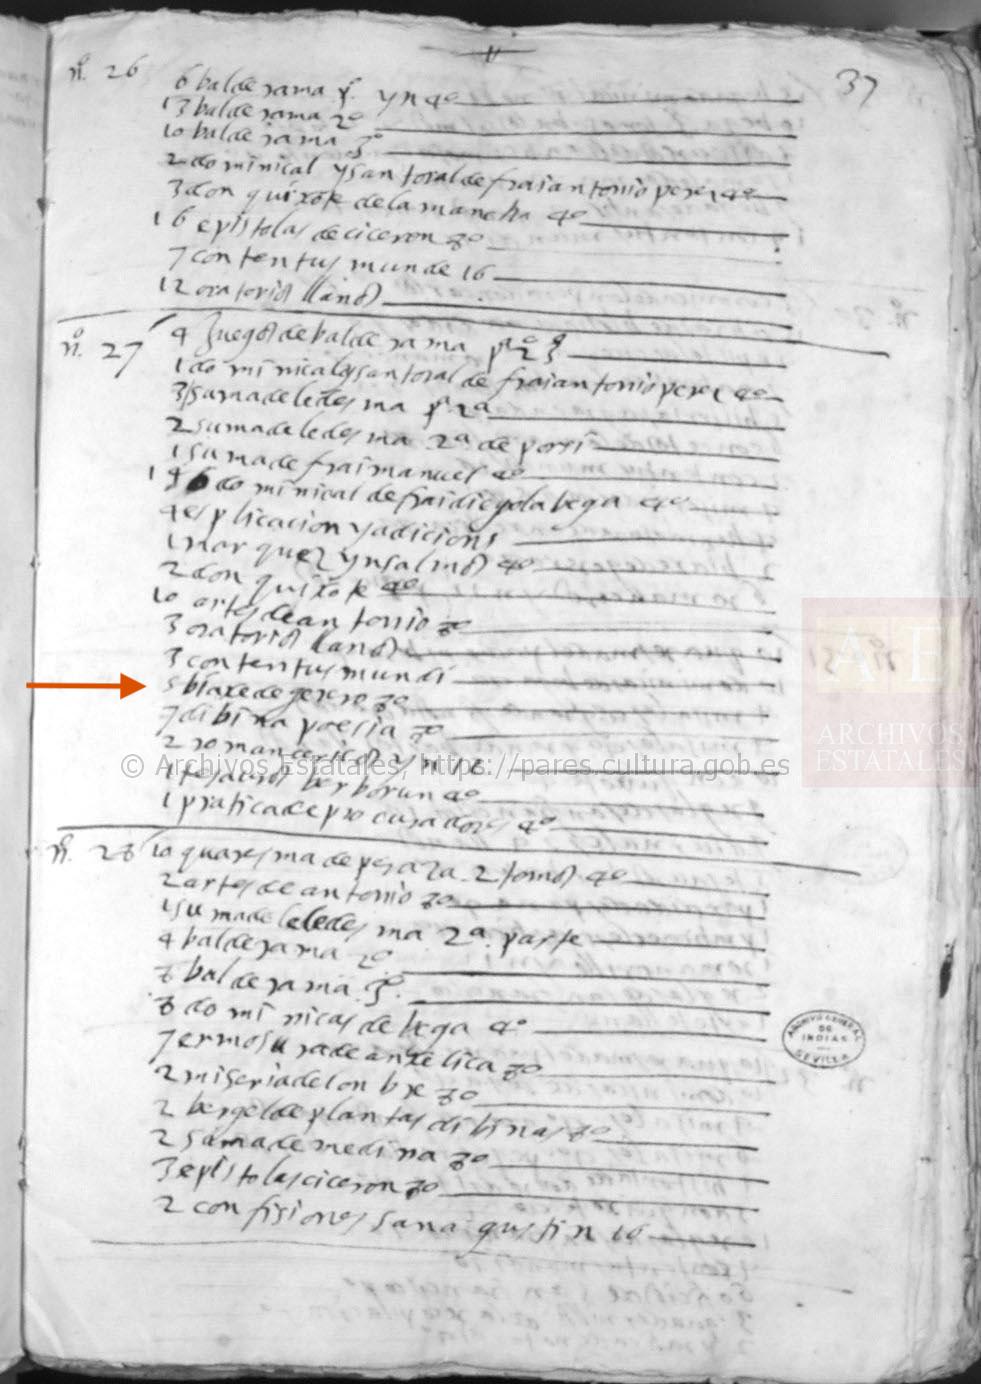 37
nº. 26
6 balderama pº. yn 4º
13 balderama 2º
10 balderama 3º
2 dominical y santoral de frai antonio perez 4º
3 don quixote de la mancha 4º
16 epistolas de ciceron 8º
7 contentus munde 16
12 oratorios llanos
nº. 27
4 juegos de balderama pº 2º 3º
1 dominical y santoral de frai antonio perez 4º
3 suma de ledesma pº 2ª
2 suma de ledesma 2ª de por si
1 suma de frai manuel 4º
14 dominical de frai diego la bega 4º
4 esplicacion y adicions
1 marquez yn salmos 4º
2 don quixote 4º
10 artes de antonio 8º
3 oratorios llanos
3 contentus mundi
5 biaxe de gerero 8º
7 dibina poesia 8º
2 romancericos
1 tesauros berborun 4º
1 pratica de procuradores 4º
nº. 28
10 quaresma de peraza 2 tomos 4º
2 artes de antonio 8º
1 suma de ledesma 2ª. parte
4 balderama 2º
8 balderama 3º.
8 dominicas de bega 4º
7 ermosura de anxelica 8º
2 miseria del onbre 8º
2 bergel de plantas dibinas 8º
2 suma de medina 8º
3 epistolas ciceron 8º
2 confisiones san agustin 16
ARCHIVO GENERAL DE INDIAS SEVILLA
AE
ARCHIVOS ESTATALES
© Archivos Estatales, https://pares.cultura.gob.es